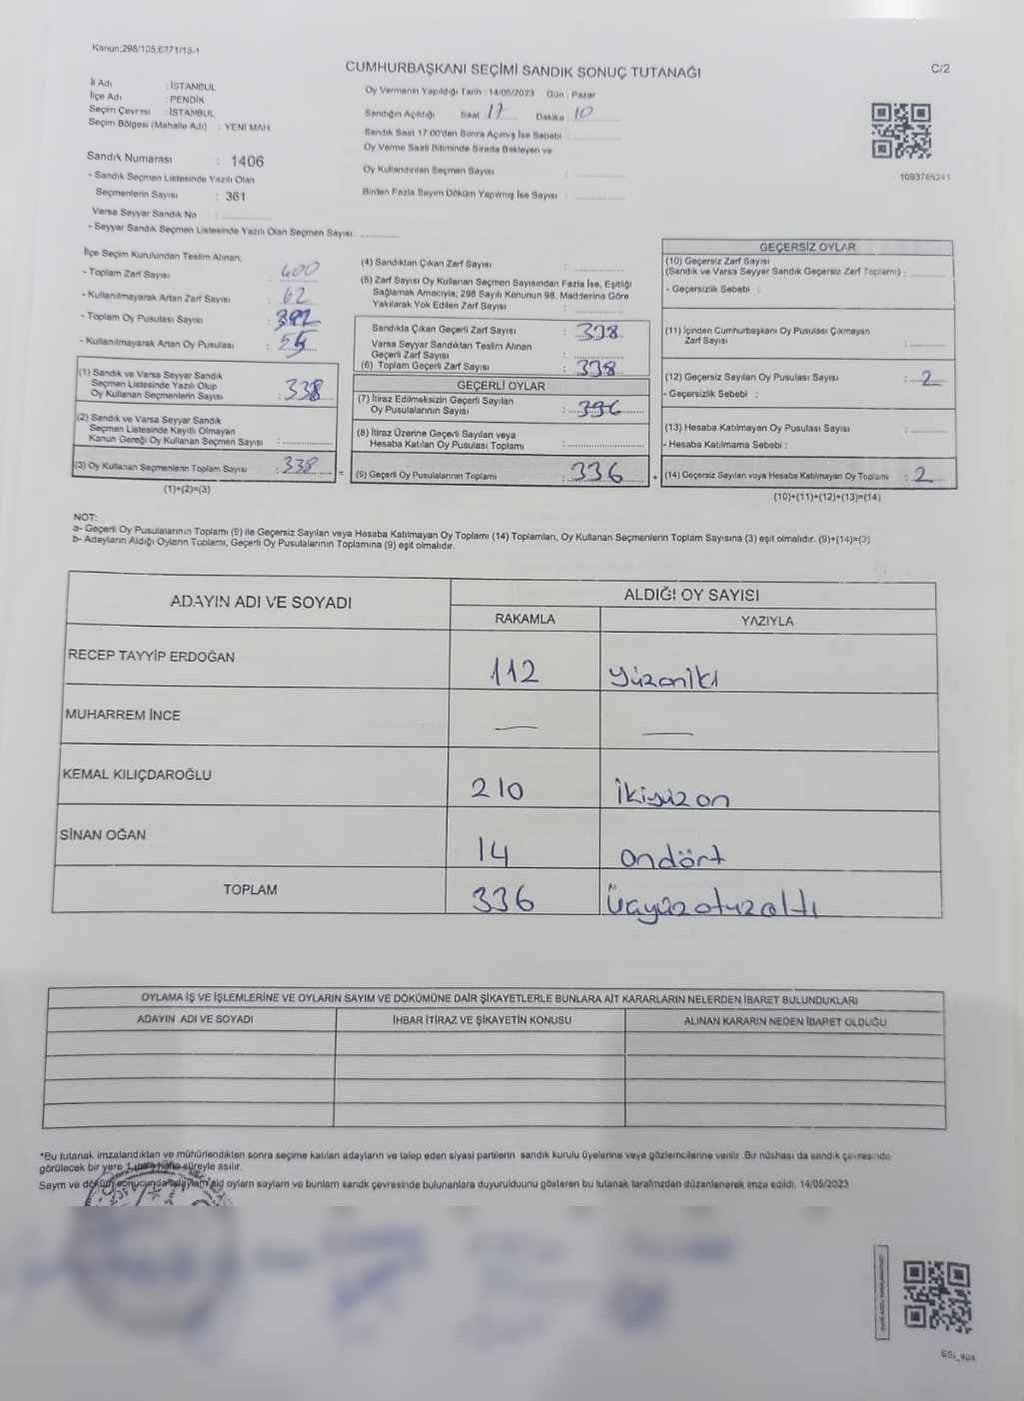 Kanun:298/105;6271/18-1
CUMHURBAŞKANI SEÇİMİ SANDIK SONUÇ TUTANAĞI
C/2
İl Adı : İSTANBUL
İlçe Adı : PENDİK
Seçim Çevresi : İSTANBUL
Seçim Bölgesi (Mahalle Adı) : YENİ MAH.
Oy Vermenin Yapıldığı Tarih : 14/05/2023 Gün : Pazar
Sandığın Açıldığı Saat 17 Dakika 10
Sandık Saat 17:00'den Sonra Açılmış İse Sebebi
Oy Verme Saati Bitiminde Sırada Bekleyen ve
Oy Kullandırılan Seçmen Sayısı :
Birden Fazla Sayım Döküm Yapılmış İse Sayısı :
1093765241
Sandık Numarası : 1406
- Sandık Seçmen Listesinde Yazılı Olan
Seçmenlerin Sayısı : 361
Varsa Seyyar Sandık No :
- Seyyar Sandık Seçmen Listesinde Yazılı Olan Seçmen Sayısı:
İlçe Seçim Kurulundan Teslim Alınan;
- Toplam Zarf Sayısı : 400
- Kullanılmayarak Artan Zarf Sayısı : 62
- Toplam Oy Pusulası Sayısı :
- Kullanılmayarak Artan Oy Pusulası :
(1) Sandık ve Varsa Seyyar Sandık
Seçmen Listesinde Yazılı Olup
Oy Kullanan Seçmenlerin Sayısı : 338
(2) Sandık ve Varsa Seyyar Sandık
Seçmen Listesinde Kayıtlı Olmayan
Kanun Gereği Oy Kullanan Seçmen Sayısı :
(3) Oy Kullanan Seçmenlerin Toplam Sayısı : 338 =
(1)+(2)=(3)
(4) Sandıktan Çıkan Zarf Sayısı :
(5) Zarf Sayısı Oy Kullanan Seçmen Sayısından Fazla İse, Eşitliği
Sağlamak Amacıyla; 298 Sayılı Kanunun 98. Maddesine Göre
Yakılarak Yok Edilen Zarf Sayısı :
Sandıkta Çıkan Geçerli Zarf Sayısı : 338
Varsa Seyyar Sandıktan Teslim Alınan
Geçerli Zarf Sayısı :
(6) Toplam Geçerli Zarf Sayısı : 338
GEÇERLİ OYLAR
(7) İtiraz Edilmeksizin Geçerli Sayılan
Oy Pusulalarının Sayısı : 336
(8) İtiraz Üzerine Geçerli Sayılan veya
Hesaba Katılan Oy Pusulası Toplamı :
(9) Geçerli Oy Pusulalarının Toplamı : 336 +
GEÇERSİZ OYLAR
(10) Geçersiz Zarf Sayısı
(Sandık ve Varsa Seyyar Sandık Geçersiz Zarf Toplamı) :
- Geçersizlik Sebebi :
(11) İçinden Cumhurbaşkanı Oy Pusulası Çıkmayan
Zarf Sayısı :
(12) Geçersiz Sayılan Oy Pusulası Sayısı : 2
- Geçersizlik Sebebi :
(13) Hesaba Katılmayan Oy Pusulası Sayısı :
- Hesaba Katılmama Sebebi :
(14) Geçersiz Sayılan veya Hesaba Katılmayan Oy Toplamı : 2
(10)+(11)+(12)+(13)=(14)
NOT:
a- Geçerli Oy Pusulalarının Toplamı (9) ile Geçersiz Sayılan veya Hesaba Katılmayan Oy Toplamı (14) Toplamları, Oy Kullanan Seçmenlerin Toplam Sayısına (3) eşit olmalıdır. (9)+(14)=(3)
b- Adayların Aldığı Oyların Toplamı, Geçerli Oy Pusulalarının Toplamına (9) eşit olmalıdır.
ADAYIN ADI VE SOYADI
ALDIĞI OY SAYISI
RAKAMLA
YAZIYLA
RECEP TAYYİP ERDOĞAN 112 yüzoniki
MUHARREM İNCE — —
KEMAL KILIÇDAROĞLU 210 ikiyüzon
SİNAN OĞAN 14 ondört
TOPLAM 336 Üçyüzotuzaltı
OYLAMA İŞ VE İŞLEMLERİNE VE OYLARIN SAYIM VE DÖKÜMÜNE DAİR ŞİKAYETLERLE BUNLARA AİT KARARLARIN NELERDEN İBARET BULUNDUKLARI
ADAYIN ADI VE SOYADI
İHBAR İTİRAZ VE ŞİKAYETİN KONUSU
ALINAN KARARIN NEDEN İBARET OLDUĞU
*Bu tutanak imzalandıktan ve mühürlendikten sonra seçime katılan adayların ve talep eden siyasi partilerin sandık kurulu üyelerine veya gözlemcilerine verilir. Bir nüshası da sandık çevresinde
görülecek bir yere 1 hafta süreyle asılır.
Sayım ve döküm sonucunda adayların aldığı oyların sayıları ve bunların sandık çevresinde bulunanlara duyurulduğunu gösteren bu tutanak tarafımızdan düzenlenerek imza edildi. 14/05/2023